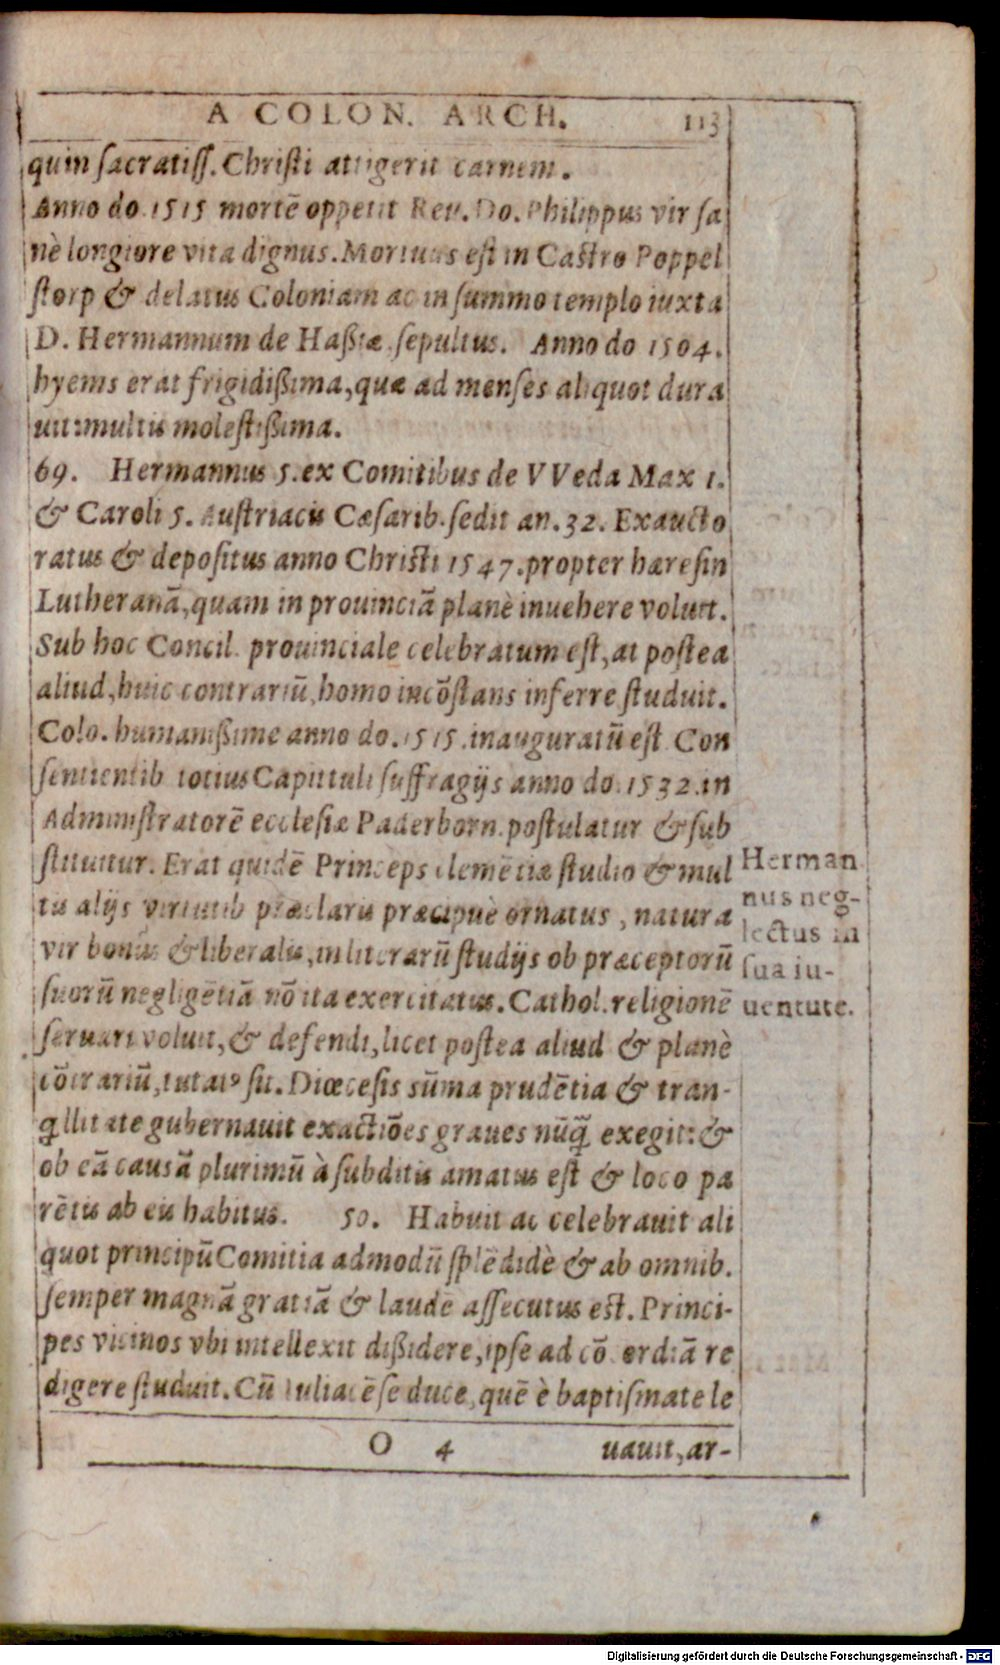 A COLON. ARCH. 113
quin sacratiss. Christi attigerit carnem.
Anno do 1515 mortē oppetit Rev. Do. Philippus vir sa
nè longiore vita dignus. Mortuus est in Castro Poppel
storp & delatus Coloniam ac in summo templo iuxta
D. Hermannum de Haßiæ sepultus. Anno do 1504.
hyems erat frigidißima, quæ ad menses aliquot dura
uit: multis molestißima.
69. Hermannus 5. ex Comitibus de VVeda Max 1.
& Caroli 5. Austriacis Cæsarib. sedit an. 32. Exaucto
ratus & depositus anno Christi 1547. propter hæresin
Lutheranā, quam in prouinciā planè inuehere voluit.
Sub hoc Concil. prouinciale celebratum est, at postea
aliud, huic contrariū, homo incōstans inferre studuit.
Colo. humanißime anno do. 1515. inauguratū est Con
sentientib totius Capittuli suffragijs anno do. 1532. in
Administratorē ecclesiæ Paderborn. postulatur & sub
stituitur. Erat quidē Princeps clemētiæ studio & mul
tis alijs virtutib præclaris præcipuè ornatus, natura
vir bonus & liberalis, in literarū studijs ob præceptorū
suorū negligētiā nō ita exercitatus. Cathol. religionē
seruari voluit, & defendi, licet postea aliud & planè
cōtrariū, tutatꝰ sit. Diœcesis sūma prudētia & tran-
qͥllitate gubernauit exactiōes graues nūqͣ exegit: &
ob eā causā plurimū à subditis amatus est & loco pa
rētis ab eis habitus. 50. Habuit ac celebrauit ali
quot principū Comitia admodū splēdidè & ab omnib.
semper magnā gratiā & laudē assecutus est. Princi-
pes vicinos vbi intellexit dißidere, ipse ad cōcordiā re
digere studuit. Cū Iuliacēse duce, quē è baptismate le
O 4 uauit, ar-
Herman
nus neg-
lectus in
sua iu-
uentute.
Digitalisierung gefördert durch die Deutsche Forschungsgemeinschaft - DFG